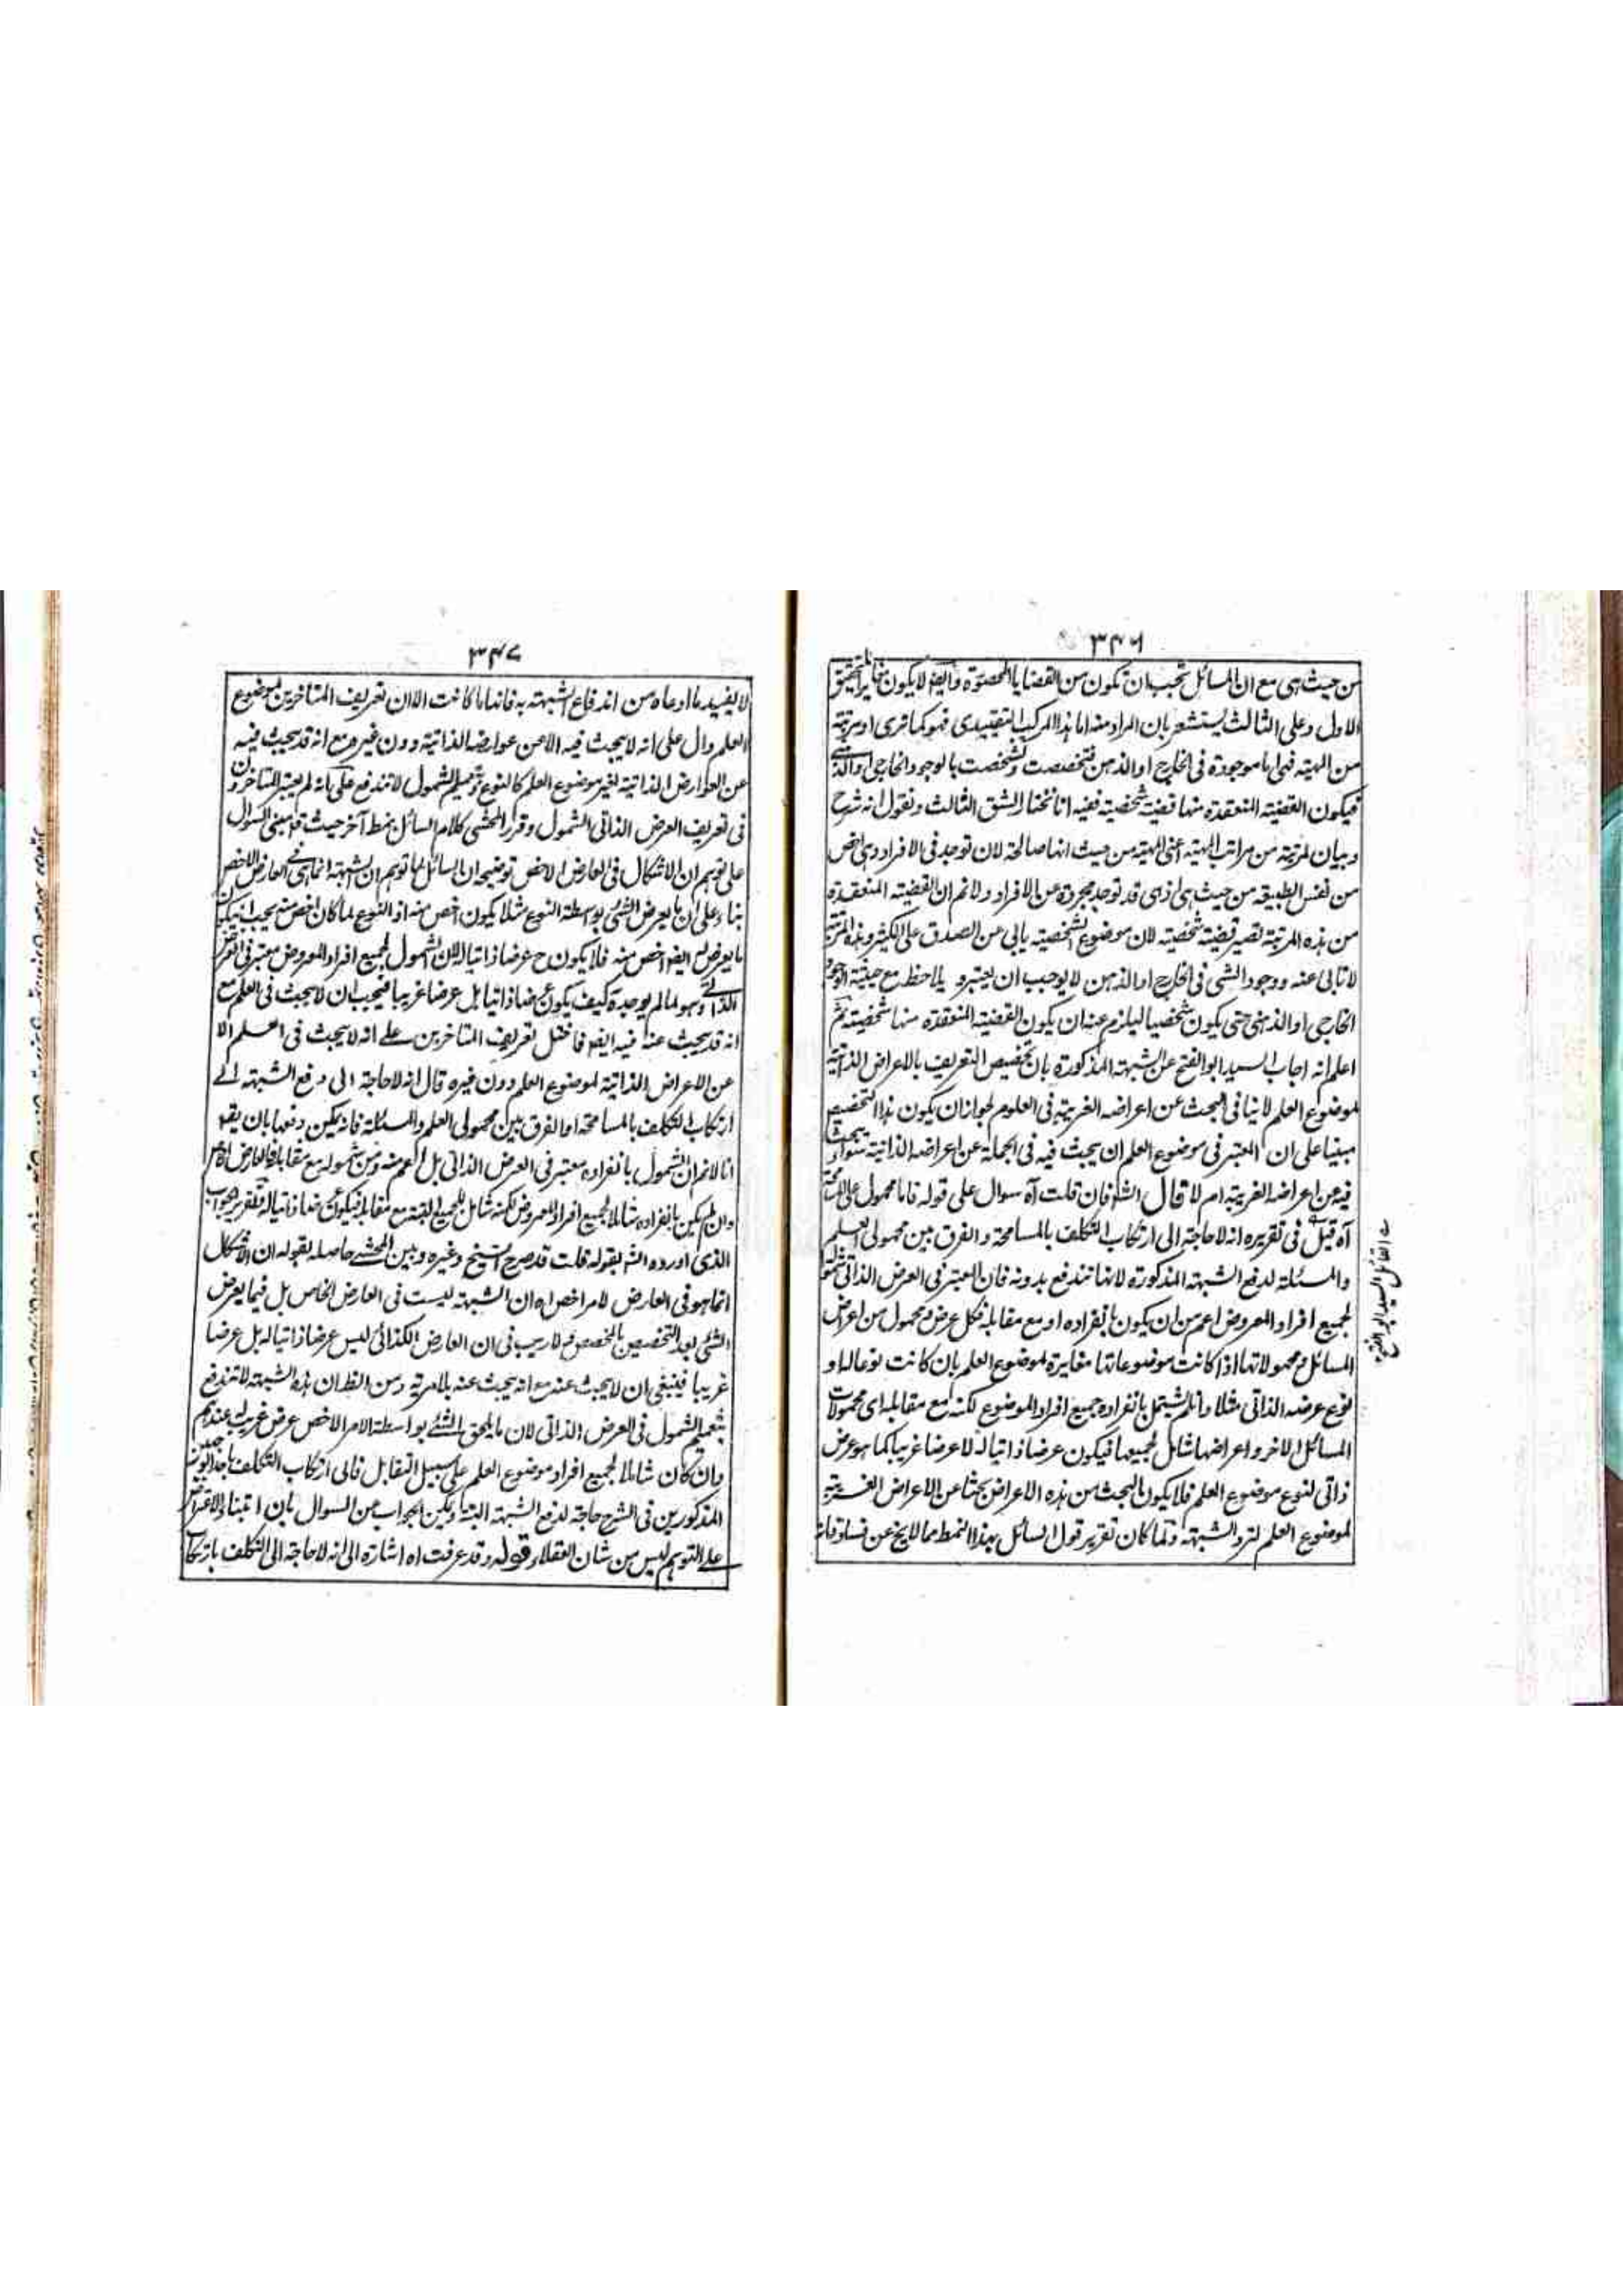 ٣٤٦
من حيث هى مع ان المسائل تجب ان تكون من القضايا المحصورة وايضا لا يكون مغايرا لتحقيق
الاول وعلى الثالث يستشعر بان المراد منه اما هذا المركب التقييدى فهو كما ترى او مرتبة
من المهية فهى اما موجودة فى الخارج او الذهن فتخصصت وتشخصت بالوجود الخارجى او الذهنى
فيكون القضية المنعقدة منها قضية شخصية ففيه انا نختار الشق الثالث ونقول انه شرح
وبيان لمرتبة من مراتب المهية اعنى المهية من حيث انها صالحة لان توجد فى الافراد وهى اخص
من نفس الطبيعة من حيث هى اذ هى قد توجد مجردة عن الافراد ولا نم ان القضية المنعقدة
من هذه المرتبة تصير قضية شخصية لان موضوع الشخصية يابى عن الصدق على الكثير وهذه المرتبة
لا تابى عنه ووجود الشى فى الخارج او الذهن لا يوجب ان يعتبر و يلاحظ مع حيثية الوجود
الخارجى او الذهنى حتى يكون شخصيا ليلزم عنه ان يكون القضية المنعقدة منها شخصية ثم
اعلم انه اجاب السيد ابو الفتح عن الشبهة المذكورة بان تخصيص التعريف بالاعراض الذاتية
لموضوع العلم لا ينافى البحث عن اعراضه الغريبة فى العلوم لجواز ان يكون هذا التخصيص
مبنيا على ان المعتبر فى موضوع العلم ان يبحث فيه فى الجملة عن اعراضه الذاتية سواء يبحث
فيه عن اعراضه الغريبة ام لا قال الش فان قلت آه سوال على قوله فاما محمول على المسامحة
آه قيل فى تقريره انه لا حاجة الى ارتكاب التكلف بالمسامحة والفرق بين محمولى العلم
والمسئلة لدفع الشبهة المذكورة لانها تندفع بدونه فان المعتبر فى العرض الذاتى شمول
لجميع افراد المعروض اعم من ان يكون بانفراده او مع مقابله فكل عرض ومحمول من اعراض
المسائل ومحمولاتها اذا كانت موضوعاتها مغايرة لموضوع العلم بان كانت نوعا له او
نوع عرضه الذاتى مثلا وان لم يشتمل بانفراده جميع افراد الموضوع لكنه مع مقابله اى محمولات
المسائل الاخر واعراضها شامل لجميعها فيكون عرضا ذاتيا له لا عرضا غريبا كما هو عرض
ذاتى لنوع موضوع العلم فلا يكون البحث من هذه الاعراض بحثا عن الاعراض الغريبة
لموضوع العلم لترد الشبهة ولما كان تقرير قول السائل بهذا النمط مما لا يخ عن فساد فانه
ه القائل السيد ابو الفتح
٣٤٧
لا يفيد ما ادعاه من اندفاع الشبهة به فانها ما كانت الا ان تعريف المتاخرين لموضوع
العلم دال على انه لا يبحث فيه الا عن عوارضه الذاتية دون غيره مع انه قد يبحث فيه
عن العوارض الذاتية لغير موضوع العلم كالنوع وتعميم الشمول لا تندفع على انه لم يعتبر المتاخرون
فى تعريف العرض الذاتى الشمول وقرر المحشى كلام السائل بنمط آخر حيث قم مبنى السوال
على توهم ان الاشكال فى العارض الاخص توضيحه ان السائل لما توهم ان الشبهة انما هى فى العارض الاخص
بناء على ان ما يعرض الشئ بواسطة النوع مثلا يكون اخص منه اذ النوع لما كان اخص منه يجب ان يكون
ما يعرض له ايضا اخص منه فلا يكون ح عرضا ذاتيا له لان الشمول لجميع افراد المعروض معتبر فى العرض
الذاتى وهو لما لم يوجد فكيف يكون عرضا ذاتيا بل عرضا غريبا فيجب ان لا يبحث فى العلم مع
انه قد يبحث عنه فيه ايضا فاختل تعريف المتاخرين على انه لا يبحث فى العلم الا
عن الاعراض الذاتية لموضوع العلم دون غيره قال انه لا حاجة الى دفع الشبهة الى
ارتكاب التكلف بالمسامحة او الفرق بين محمولى العلم والمسئلة فانه يمكن دفعها بان يقم
انا لا نم ان الشمول بانفراده معتبر فى العرض الذاتى بل اعم منه ومن شموله مع مقابله فالعارض الاخص
وان لم يكن بانفراده شاملا لجميع افراد المعروض لكنه شامل للجميع البتة مع مقابله فيكون عرضا ذاتيا له فتقرير الجواب
الذى اورده الش بقوله قلت قد صرح الشيخ وغيره وبين المحشى حاصله بقوله ان الاشكال
انما هو فى العارض لامر اخص اه ان الشبهة ليست فى العارض الخاص بل فيما يعرض
الشئ بعد التخصيص بالخصص ولا ريب فى ان العارض الكذائى ليس عرضا ذاتيا له بل عرضا
غريبا فينبغى ان لا يبحث عنه مع انه يبحث عنه بلا مرية ومن الظ ان هذه الشبهة لا تندفع
بتعميم الشمول فى العرض الذاتى لان ما يلحق الشئ بواسطة الامر الاخص عرض غريب عندهم
وان كان شاملا لجميع افراد موضوع العلم على سبيل التقابل فالى ارتكاب التكلف باحد الجوابين
المذكورين فى الشرح حاجة لدفع الشبهة البتة ويمكن الجواب من السوال بان ابتناء الاعتراض
على التوهم ليس من شان العقلاء قوله وقد عرفت اه اشارة الى انه لا حاجة الى التكلف بارتكاب